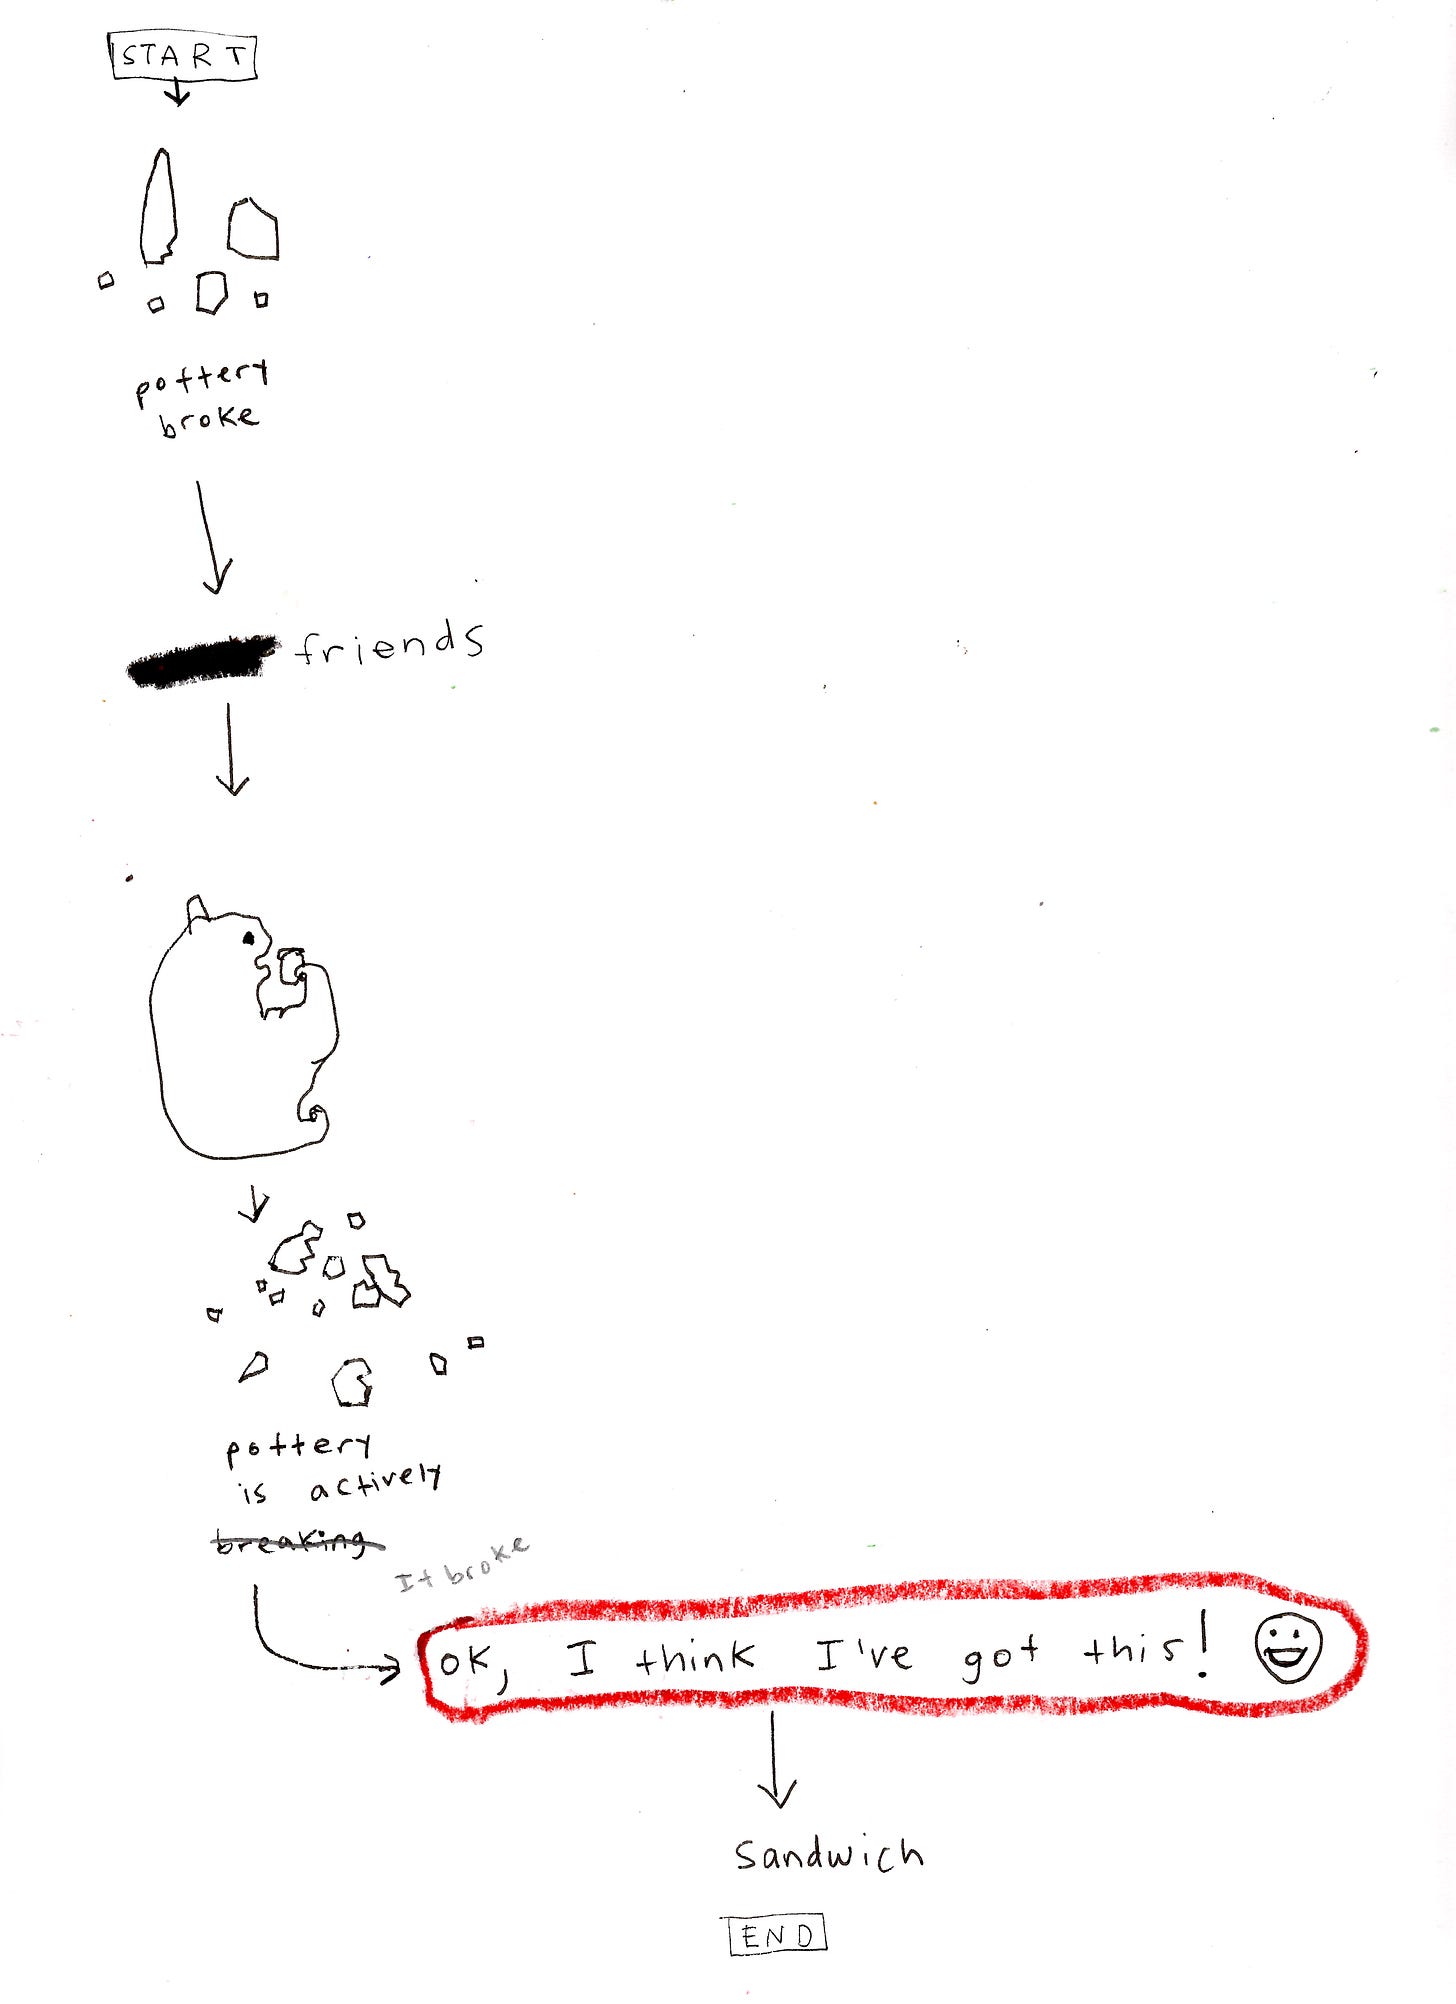 START
pottery
broke
friends
pottery
is actively
breaking
It broke
OK, I think I've got this!
Sandwich
END